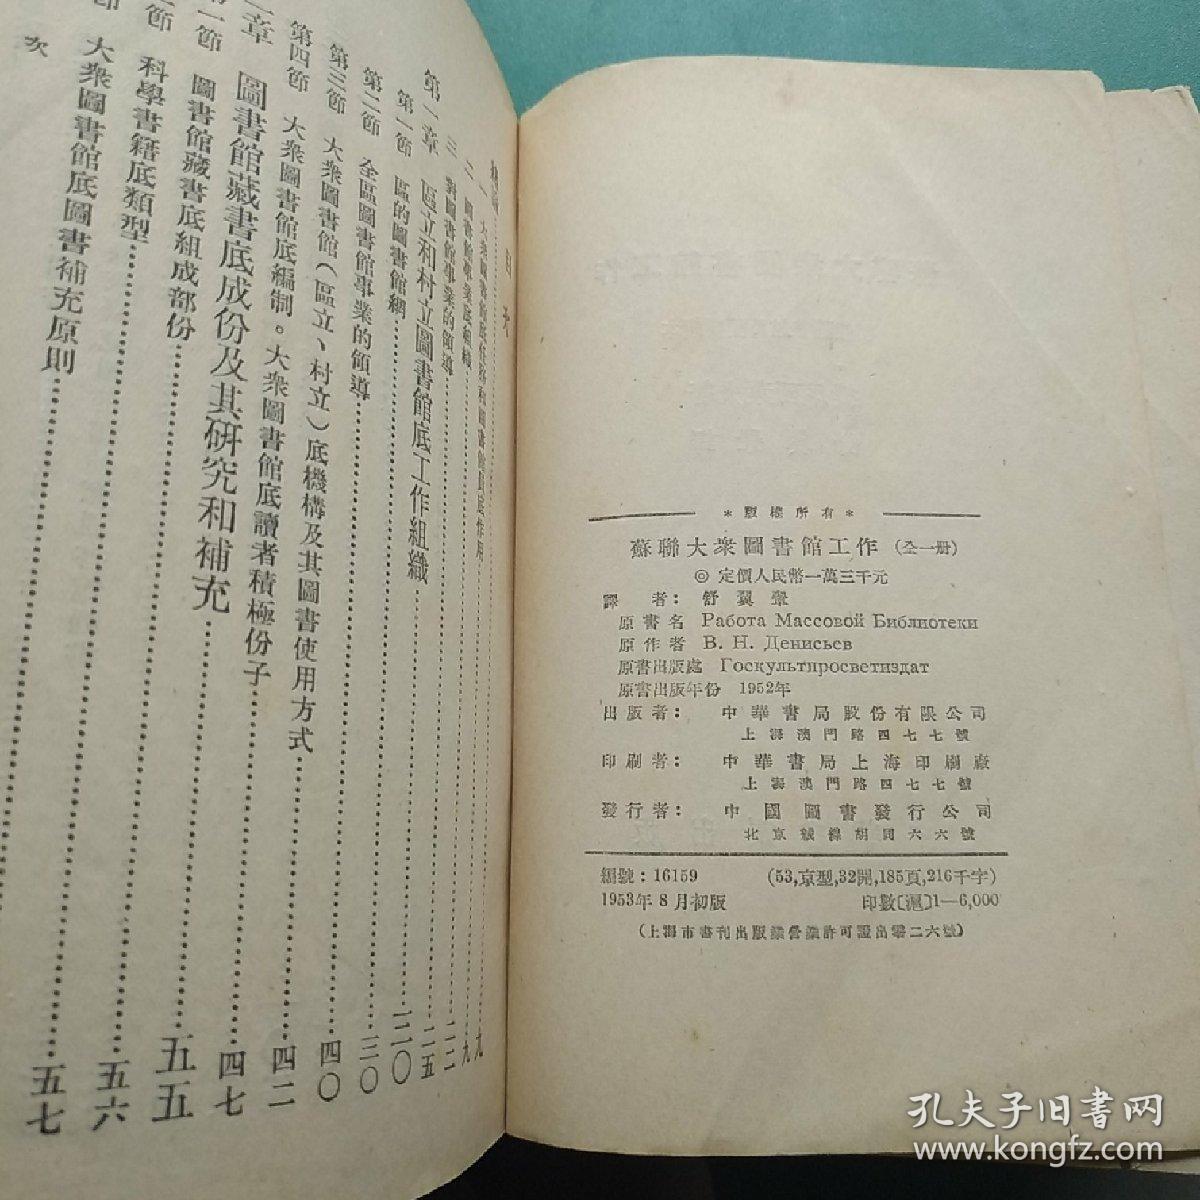 目次
一 大衆圖書館底任務和圖書館員底作用 九
二 圖書館事業底組織 九
三 對圖書館事業的領導 二二
第一章 區立和村立圖書館底工作組織 二五
第一節 區的圖書館網
第二節 全區圖書館事業的領導 三〇
第三節 大衆圖書館(區立、村立)底機構及其圖書使用方式 四〇
第四節 大衆圖書館底編制。大衆圖書館底讀者積極份子 四二
章 圖書館藏書底成份及其研究和補充 四七
第一節 圖書館藏書底組成部份 五五
節 科學書籍底類型 五六
節 大衆圖書館底圖書補充原則 五七
次
*版權所有*
蘇聯大衆圖書館工作 (全一册)
◎ 定價人民幣一萬三千元
譯者: 舒翼翬
原書名 Работа Массовой Библиотеки
原作者 В. Н. Денисьев
原書出版處 Госкультпросветиздат
原書出版年份 1952年
出版者: 中華書局股份有限公司
上海澳門路四七七號
印刷者: 中華書局上海印刷廠
上海澳門路四七七號
發行者: 中國圖書發行公司
北京絨綫胡同六六號
編號:16159 (53,京型,32開,185頁,216千字)
1953年8月初版 印數〔滬〕1—6,000
(上海市書刊出版業營業許可證出零二六號)
孔夫子旧书网
www.kongfz.com